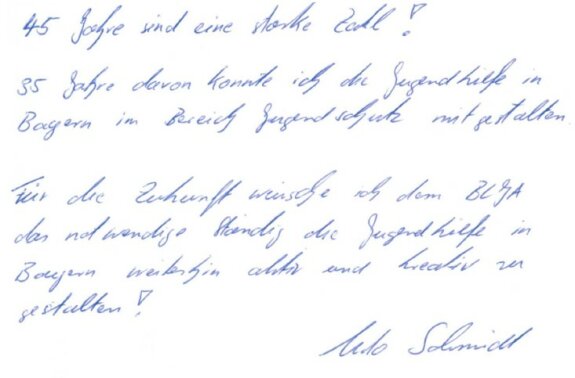 45 Jahre sind eine starke Zahl!
35 Jahre davon konnte ich die Jugendhilfe in
Bayern im Bereich Jugendschutz mitgestalten.
Für die Zukunft wünsche ich dem BLJA
das notwendige ständig die Jugendhilfe in
Bayern weiterhin aktiv und kreativ zu
gestalten!
Udo Schmidt